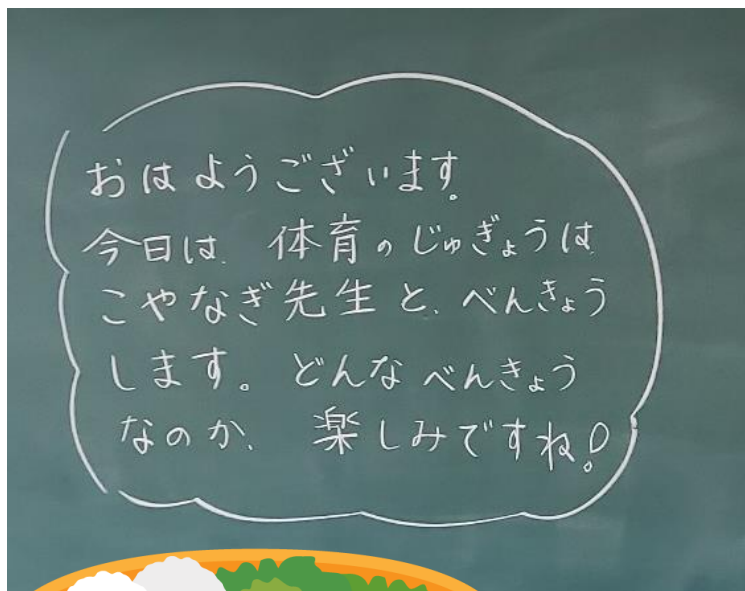 おはようございます。
今日は、体育のじゅぎょうは、
こやなぎ先生と、べんきょう
します。どんなべんきょう
なのか、楽しみですね!